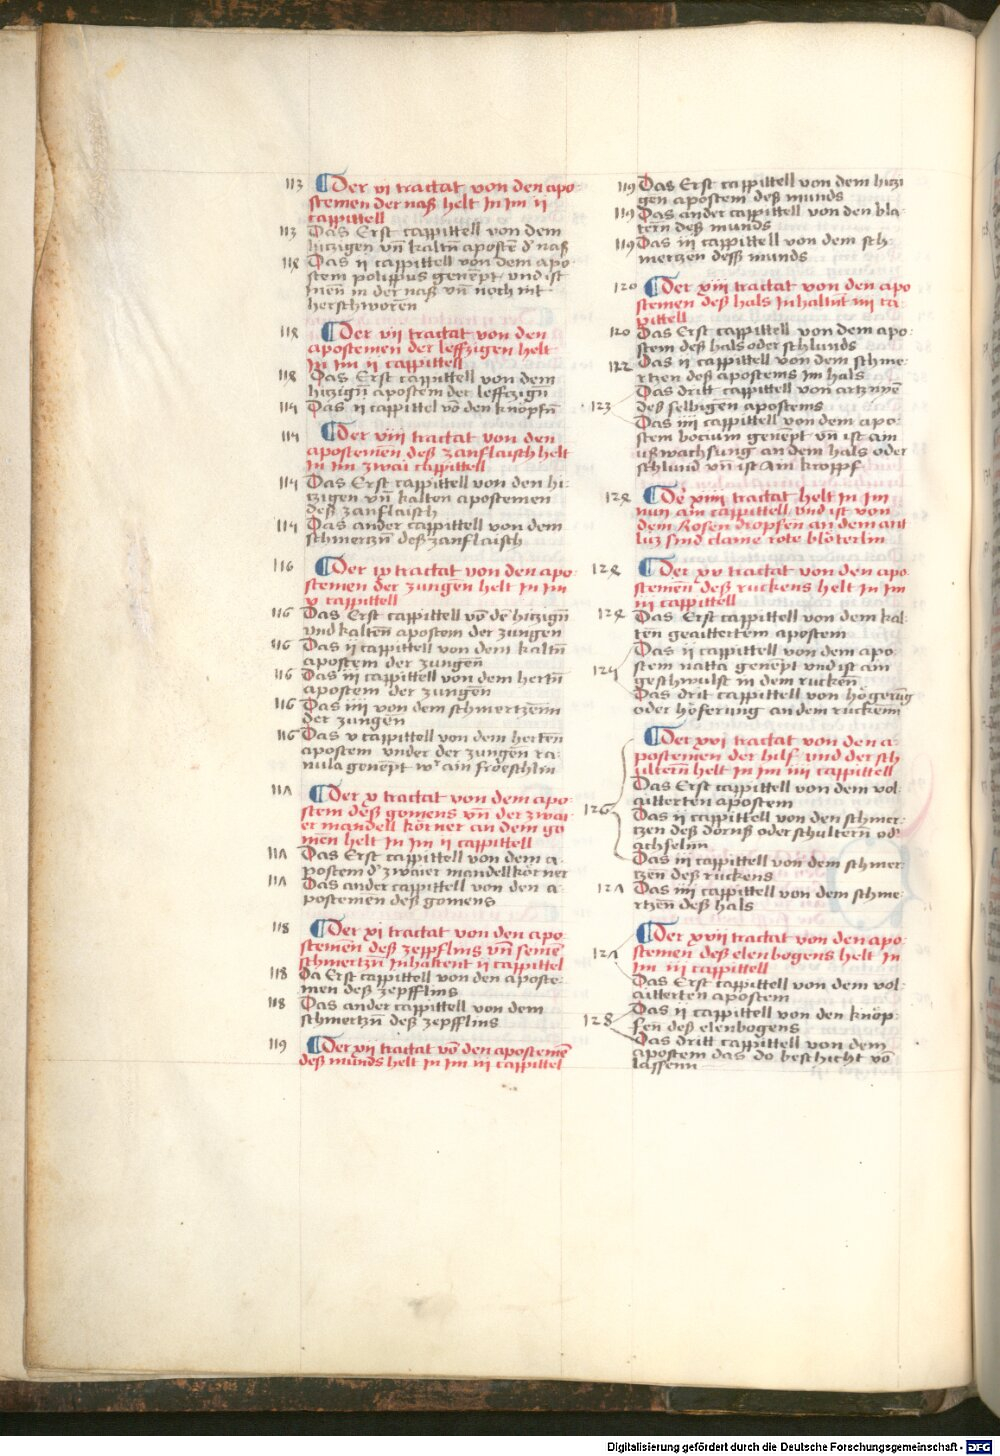 113 Der vi tractat von den apo
stemen der naß helt In im ii
cappittell
113 Das Erst cappittell von dem
hitzigen vn̄ kaltn̄ apostē d' naß
114 Das ii cappittell von dem apo
stem polippus genēpt vnd ist
inen̄ in der naß vn̄ noch nit
herschworen̄
114 Der vii tractat von den
apostemen der leffzigen helt
In im ii cappittell
114 Das Erst cappittell von dem
hitzign̄ apostem der leffczign̄
115 Das ii cappittel vō den knöpfn̄
115 Der viii tractat von den
apostemen̄ deß zanflaisch helt
In im zwai cappittell
115 Das Erst cappittell von den hi-
tzigen vn̄ kalten apostemen
deß zanflaisch
115 Das ander cappittell von dem
schmertzn̄ deß zanflaisch
116 Der ix tractat von den apo-
stemen der zungen̄ helt In im
v cappittell
116 Das Erst cappittell vō dē hitzign̄
vnd kalten̄ apostem der zungen
116 Das ii cappittell von dem kaltn̄
apostem der zungen̄
116 Das iii cappittell von dem hertn̄
apostem der zungen̄
116 Das iiii von dem schmertzēnn
der zungen̄
116 Das v cappittell von dem herten̄
apostem vnder der zungen̄ ra-
nula genēpt wr̄ ain fröeschlin
117 Der x tractat von dem apo-
stem deß gomens vn̄ der zwai-
er mandell körner an dem go
men̄ helt In im ii cappittell
117 Das Erst cappittell von dem a-
postem d' zwaier mandellkörner
117 Das ander cappittell von den a-
postemen deß gomens
118 Der xi tractat von den apo-
stemen̄ deß zepfflins vn̄ seinē
schmertzn̄ Inhaltent ii cappittel
118 Da Erst cappittell von den aposte-
men deß zepfflins
118 Das ander cappittell von dem
schmertzn̄ deß zepfflins
119 Der xii tractat vō den apostemen̄
deß munds helt In im iii cappittel
119 Das Erst cappittell von dem hitzi
gen apostem deß munds
119 Das ander cappittell von den bla-
tern̄ deß munds
119 Das iii cappittell von dem sch-
mertzen deß munds
120 Der xiii tractat von den apo
stemen deß hals Inhaltnt iiii ca-
pittell
120 Das Erst cappittell von dem apo-
stem deß hals oder schlunds
122 Das ii cappittell von dem schme-
rtzen deß apostems im hals
Das dritt cappittell von artznyē
123 deß selbigen̄ apostems
Das iiii cappittell von dem apo-
stem bocium genēpt vn̄ ist ain
ußwachsung an dem hals oder
schlund vn̄ ist Ain kropff
124 De xiiii tractat helt In im
nun ain cappittell vnd ist von
dem Rosen dropfen an dem ant
lüz sind claine rote blöterlin
124 Der xv tractat von den apo-
stemen̄ deß ruckens helt In im
iii cappittell
124 Das Erst cappittell von dem kal-
ten̄ geaittertem apostem
Das ii cappittell von dem apo-
stem natta genēpt vnd ist ain
125 geschwulst in dem rucken̄
Das drit cappittell von högerūg
oder höferung an dem ruckenn̄
Der xvi tractat von den a-
postemen der hilf und der sch
ultern̄ helt In im iiii cappittell
Das Erst cappittell von dem vol
aitterten apostem
126 Das ii cappittell von den schmer-
tzen deß dornß oder schultern̄ od'
achselnn̄
Das iii cappittell von dem schmer-
tzen deß ruckens
127 Das iiii cappittell von dem schme-
rtzen̄ deß hals
Der xvii tractat von den apo-
127 stemen̄ deß elenbogens helt In
im iii cappittell
Das Erst cappittell von dem vol-
aitterten apostem
128 Das ii cappittell von den knöp-
fen̄ deß elenbogens
Das dritt cappittell von dem
apostem das do beschicht vō
lassenn̄
Digitalisierung gefördert durch die Deutsche Forschungsgemeinschaft - DFG